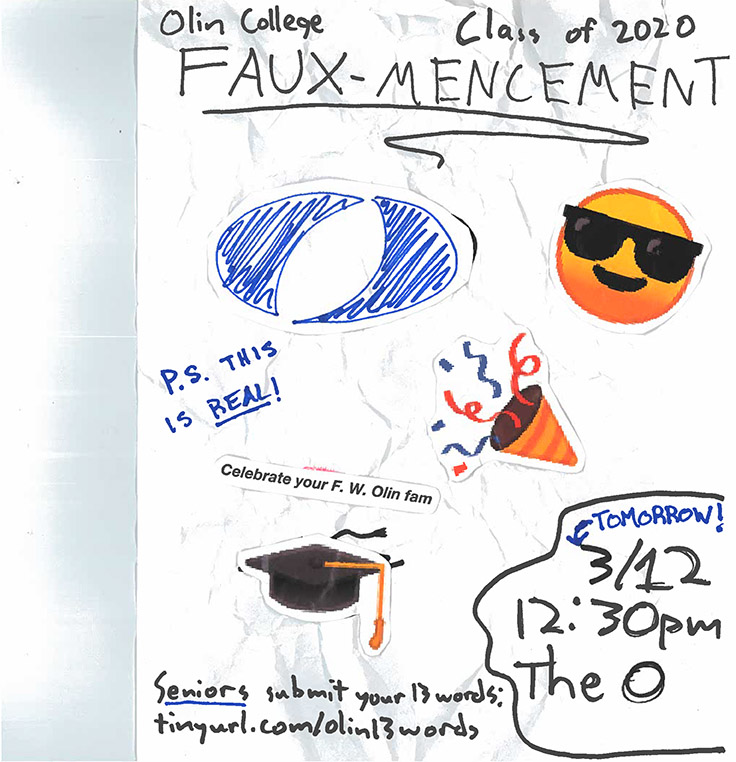 Olin College
Class of 2020
FAUX-MENCEMENT
P.S. THIS
IS REAL!
Celebrate your F. W. Olin fam
TOMORROW!
3/12
12:30pm
The O
Seniors submit your 13 words:
tinyurl.com/olin13words